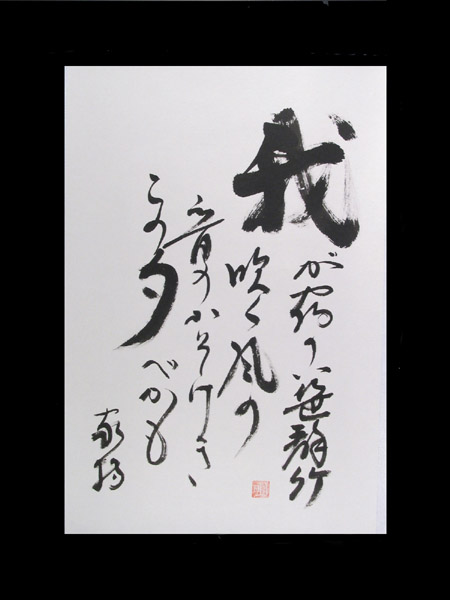 我が宿のい笹群竹
吹く風の
音のかそけき
この夕べかも
家持